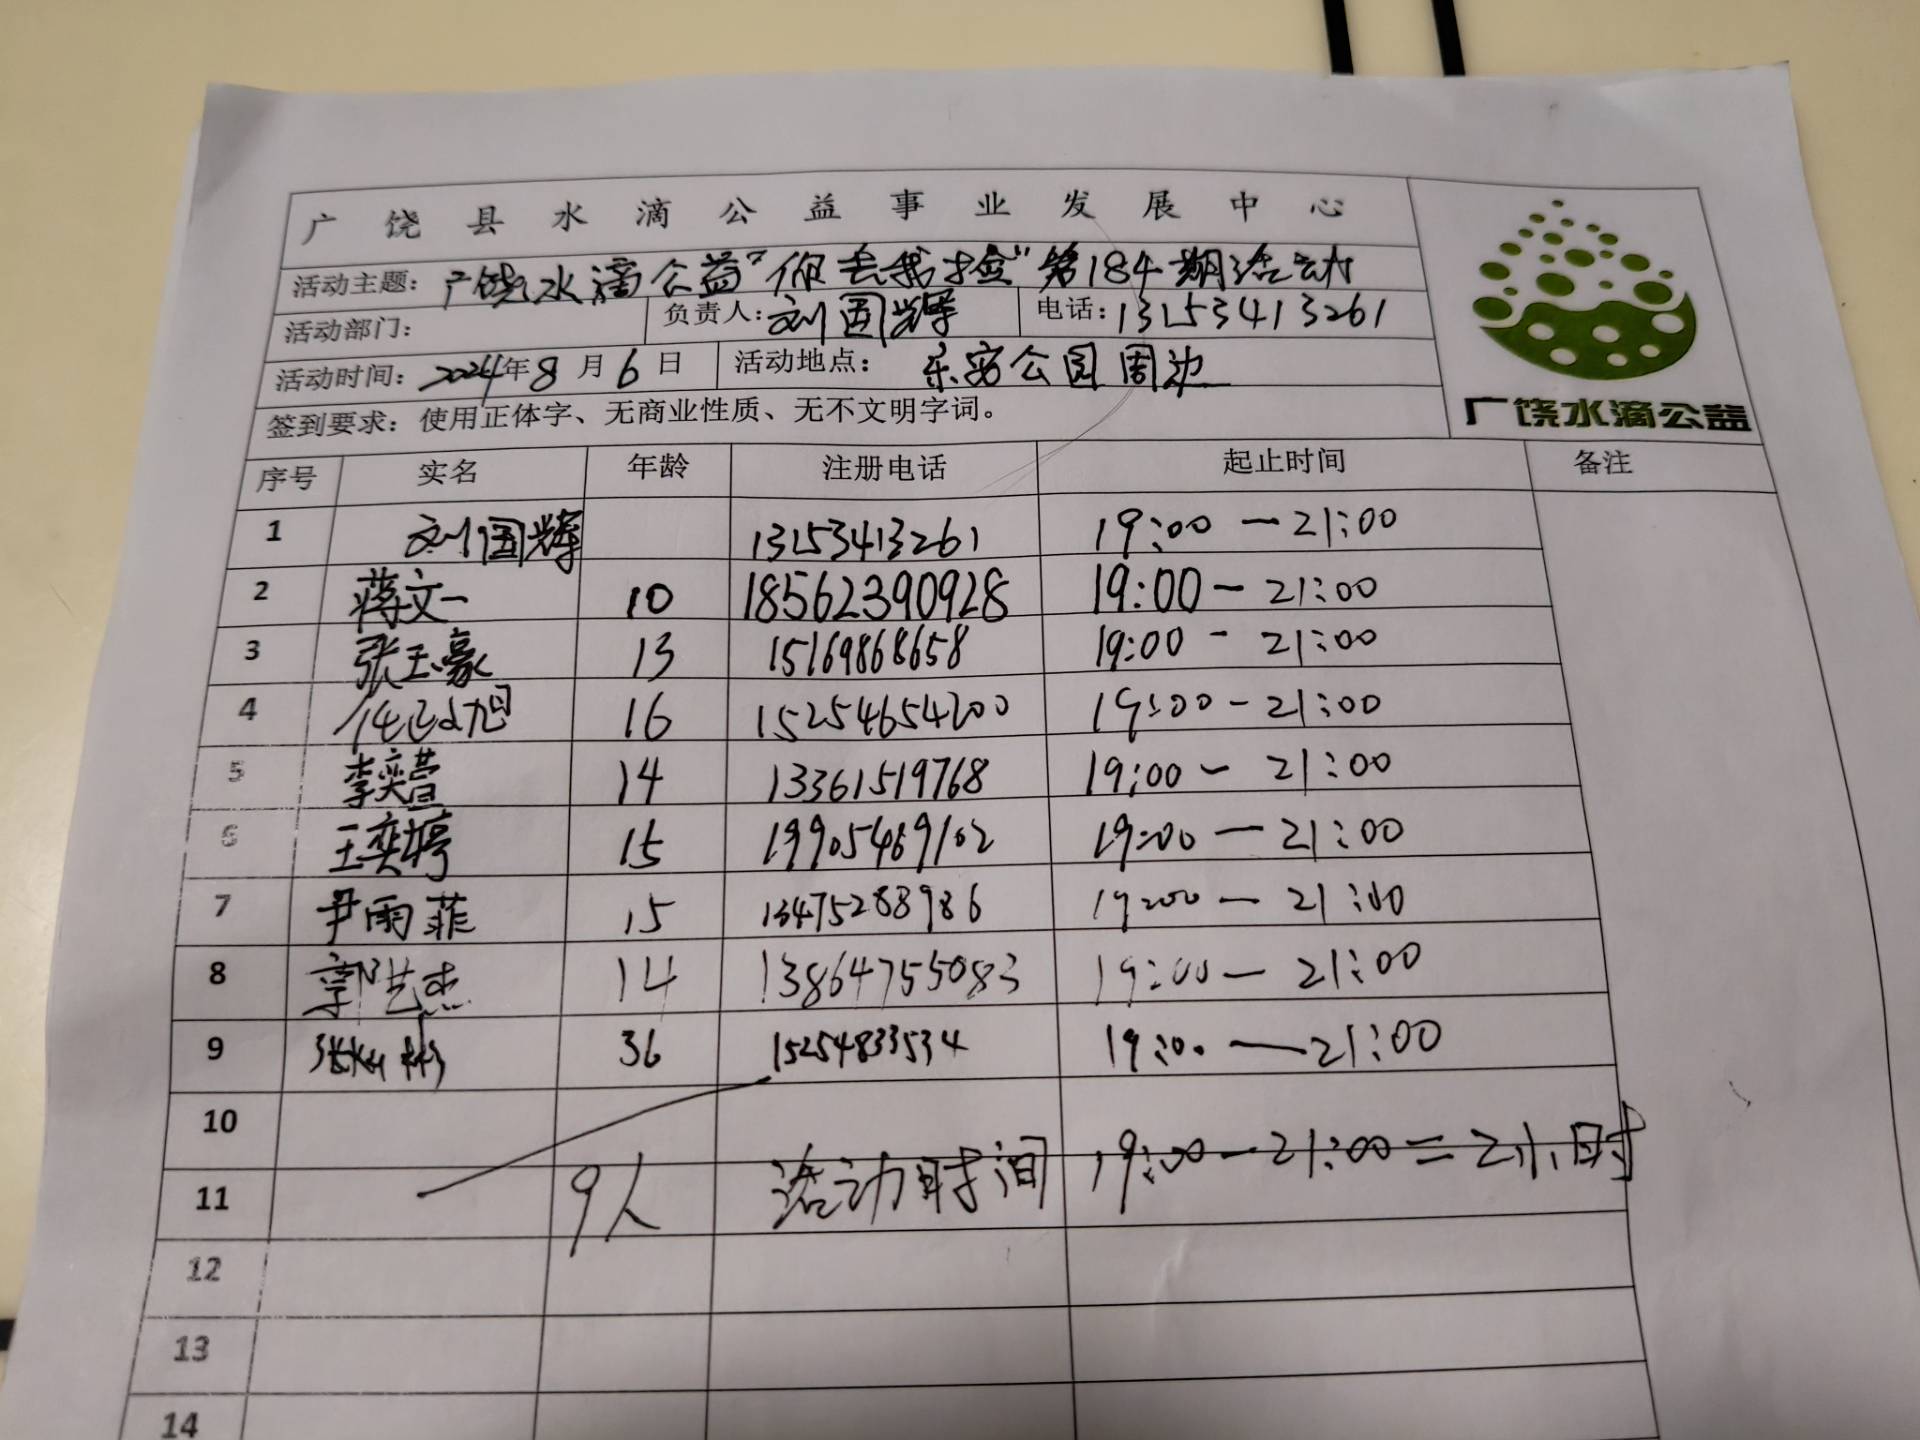 广饶县水滴公益事业发展中心
活动主题：广饶水滴公益"你丢我捡"第184期活动
活动部门： 负责人：刘国辉 电话：13153413261
活动时间：2024年8月6日 活动地点：乐安公园周边
签到要求：使用正体字、无商业性质、无不文明字词。
广饶水滴公益
序号 实名 年龄 注册电话 起止时间 备注
1 刘国辉 13153413261 19:00—21:00
2 蒋文一 10 18562390928 19:00—21:00
3 张玉豪 13 15169868658 19:00-21:00
4 16 15254654200 19:00-21:00
5 李奕萱 14 13361519768 19:00-21:00
6 王奕婷 15 19905469102 19:00—21:00
7 尹雨菲 15 13475288986 19:00—21:00
8 郭艺杰 14 13864755083 19:00—21:00
9 36 15254833534 19:00—21:00
10
11 9人 活动时间 19:00—21:00=2小时
12
13
14